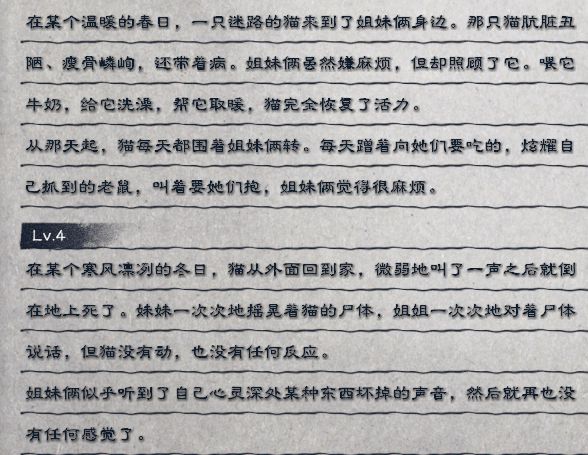 在某个温暖的春日，一只迷路的猫来到了姐妹俩身边。那只猫肮脏丑
陋、瘦骨嶙峋，还带着病。姐妹俩虽然嫌麻烦，但却照顾了它。喂它
牛奶，给它洗澡，帮它取暖，猫完全恢复了活力。
从那天起，猫每天都围着姐妹俩转。每天蹭着向她们要吃的，炫耀自
己抓到的老鼠，叫着要她们抱，姐妹俩觉得很麻烦。
Lv.4
在某个寒风凛冽的冬日，猫从外面回到家，微弱地叫了一声之后就倒
在地上死了。妹妹一次次地摇晃着猫的尸体，姐姐一次次地对着尸体
说话，但猫没有动，也没有任何反应。
姐妹俩似乎听到了自己心灵深处某种东西坏掉的声音，然后就再也没
有任何感觉了。